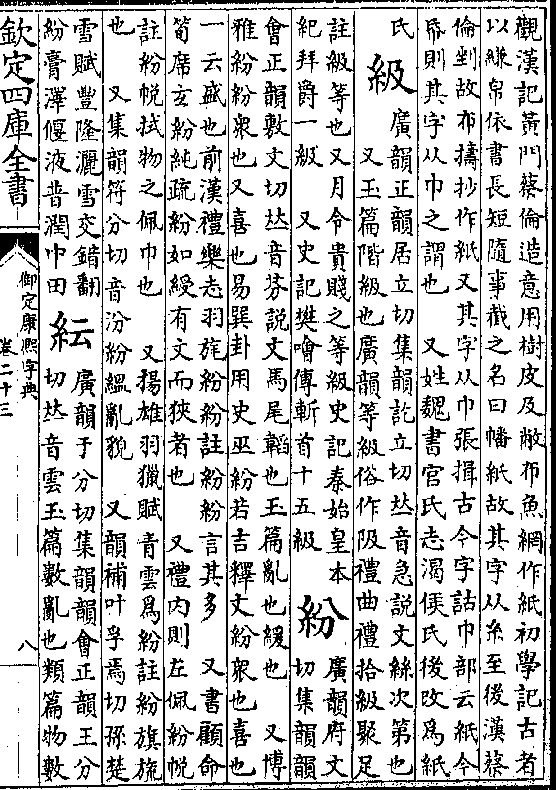 觀漢記黃門蔡倫造意用樹皮及敝布魚網作紙初學記古者
以縑帛依書長短隨事截之名曰幡紙故其字从糸至後漢蔡
倫剉故布擣抄作紙又其字从巾張揖古今字詁巾部云紙今
帋則其字从巾之謂也 又姓魏書官氏志渴侯氏後改爲紙
氏
級
廣韻正韻居立切集韻訖立切𠀤音急說文絲次第也
又玉篇階級也廣韻等級俗作阪禮曲禮拾級聚足
註級等也又月令貴賤之等級史記秦始皇本
紀拜爵一級 又史記樊噲傳斬首十五級
紛
廣韻府文
切集韻韻
會正韻敷文切𠀤音芬說文馬尾韜也玉篇亂也緩也 又博
雅紛紛衆也又喜也易巽卦用史巫紛若吉釋文紛衆也喜也
一云盛也前漢禮樂志羽旄紛紛註紛紛言其多 又書顧命
筍席玄紛純疏紛如綬有文而狹者也 又禮內則左佩紛帨
註紛帨拭物之佩巾也 又揚雄羽獵賦青雲爲紛註紛旗旒
也 又集韻符分切音汾紛縕亂貌 又韻補叶孚焉切孫楚
雪賦豐隆灑雪交錯翻
紛膏澤偃液普潤中田
紜
廣韻于分切集韻韻會正韻王分
切𠀤音雲玉篇數亂也類篇物數
欽定四庫全書
御定康熙字典
卷二十三
八